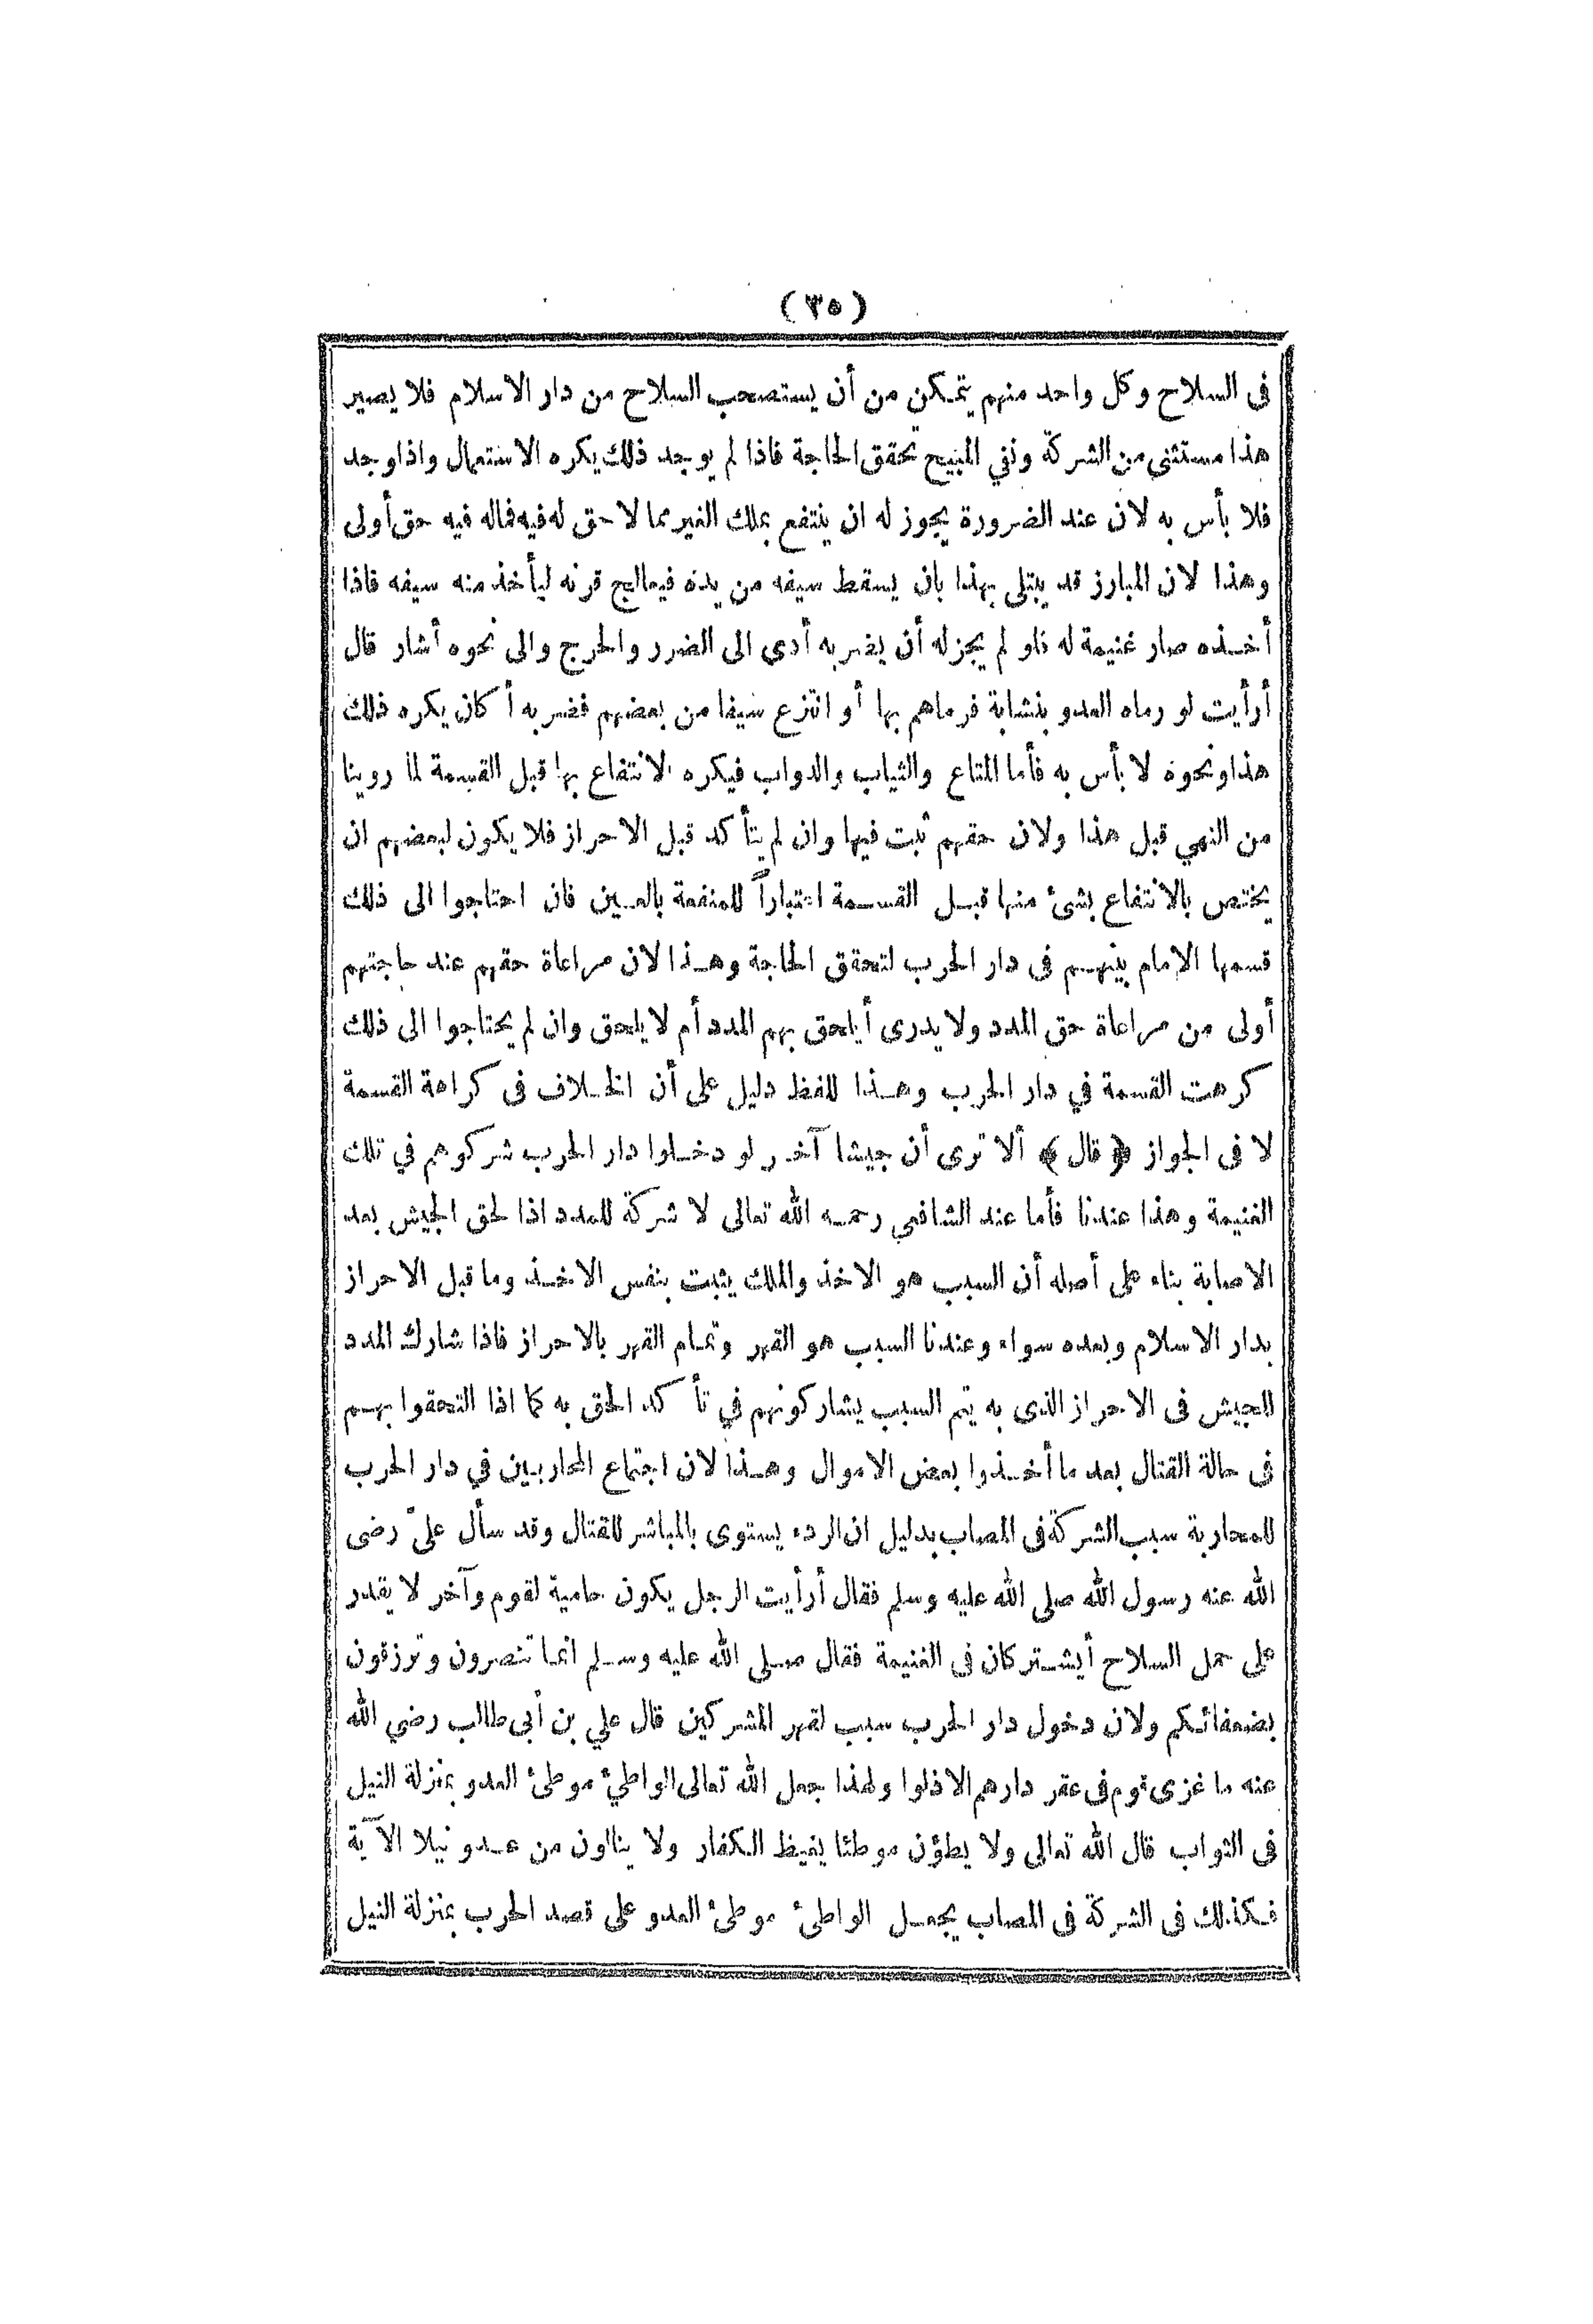 (٣٥)
فى السلاح وكل واحد منهم يتمكن من أن يستصحب السلاح من دار الاسلام فلا يصير
هذا مستثنى من الشركة ونفي المبيح تحقق الحاجة فاذا لم يوجد ذلك يكره الاستعمال واذا وجد
فلا بأس به لان عند الضرورة يجوز له ان ينتفع بملك الغير مما لا حق له فيه فماله فيه حق أولى
وهذا لان المبارز قد يبتلى بهذا بان يسقط سيفه من يده فيعالج قرنه ليأخذ منه سيفه فاذا
أخذه صار غنيمة له فلو لم يجز له أن يضربه أدى الى الضرر والحرج والى نحوه أشار قال
أرأيت لو رماه العدو بنشابة فرماهم بها أو انتزع سيفا من بعضهم فضربه أكان يكره ذلك
هذا ونحوه لا بأس به فأما المتاع والثياب والدواب فيكره الانتفاع بها قبل القسمة لما روينا
من النهي قبل هذا ولان حقهم ثبت فيها وان لم يتأكد قبل الاحراز فلا يكون لبعضهم ان
يختص بالانتفاع بشئ منها قبل القسمة اعتباراً للمنفعة بالعين فان احتاجوا الى ذلك
قسمها الامام بينهم فى دار الحرب لتحقق الحاجة وهذا لان مراعاة حقهم عند حاجتهم
أولى من مراعاة حق المدد ولا يدرى أيلحق بهم المدد أم لا يلحق وان لم يحتاجوا الى ذلك
كرهت القسمة في دار الحرب وهذا اللفظ دليل على أن الخلاف فى كراهة القسمة
لا فى الجواز ﴿قال﴾ ألا ترى أن جيشا آخر لو دخلوا دار الحرب شركوهم في تلك
الغنيمة وهذا عندنا فأما عند الشافعي رحمه الله تعالى لا شركة للمدد اذا لحق الجيش بعد
الاصابة بناء على أصله أن السبب هو الاخذ والملك يثبت بنفس الاخذ وما قبل الاحراز
بدار الاسلام وبعده سواء وعندنا السبب هو القهر وتمام القهر بالاحراز فاذا شارك المدد
للجيش فى الاحراز الذى به يتم السبب يشاركونهم في تأكد الحق به كما اذا التحقوا بهم
فى حالة القتال بعد ما أخذوا بعض الاموال وهذا لان اجتماع المحاربين في دار الحرب
للمحاربة سبب الشركة فى المصاب بدليل ان الردء يستوى بالمباشر للقتال وقد سأل علىّ رضى
الله عنه رسول الله صلى الله عليه وسلم فقال أرأيت الرجل يكون حامية لقوم وآخر لا يقدر
على حمل السلاح أيشتركان فى الغنيمة فقال صلى الله عليه وسلم انما تنصرون وترزقون
بضعفائكم ولان دخول دار الحرب سبب لقهر المشركين قال علي بن أبى طالب رضي الله
عنه ما غزى قوم فى عقر دارهم الا ذلوا ولهذا جعل الله تعالى الواطئ موطئ العدو بمنزلة النيل
فى الثواب قال الله تعالى ولا يطؤن موطئا يغيظ الكفار ولا ينالون من عدو نيلا الآية
فكذلك فى الشركة فى المصاب يجعل الواطئ موطئ العدو على قصد الحرب بمنزلة النيل